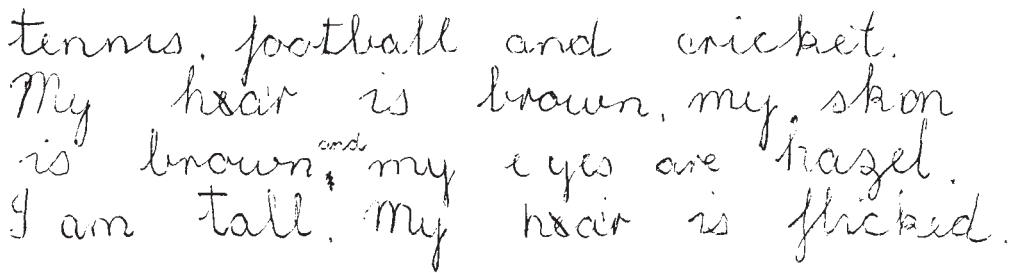 tennis, football and cricket.
My hair is brown, my skon
is brown, and my eyes are hazel.
I am tall. My hair is flicked.